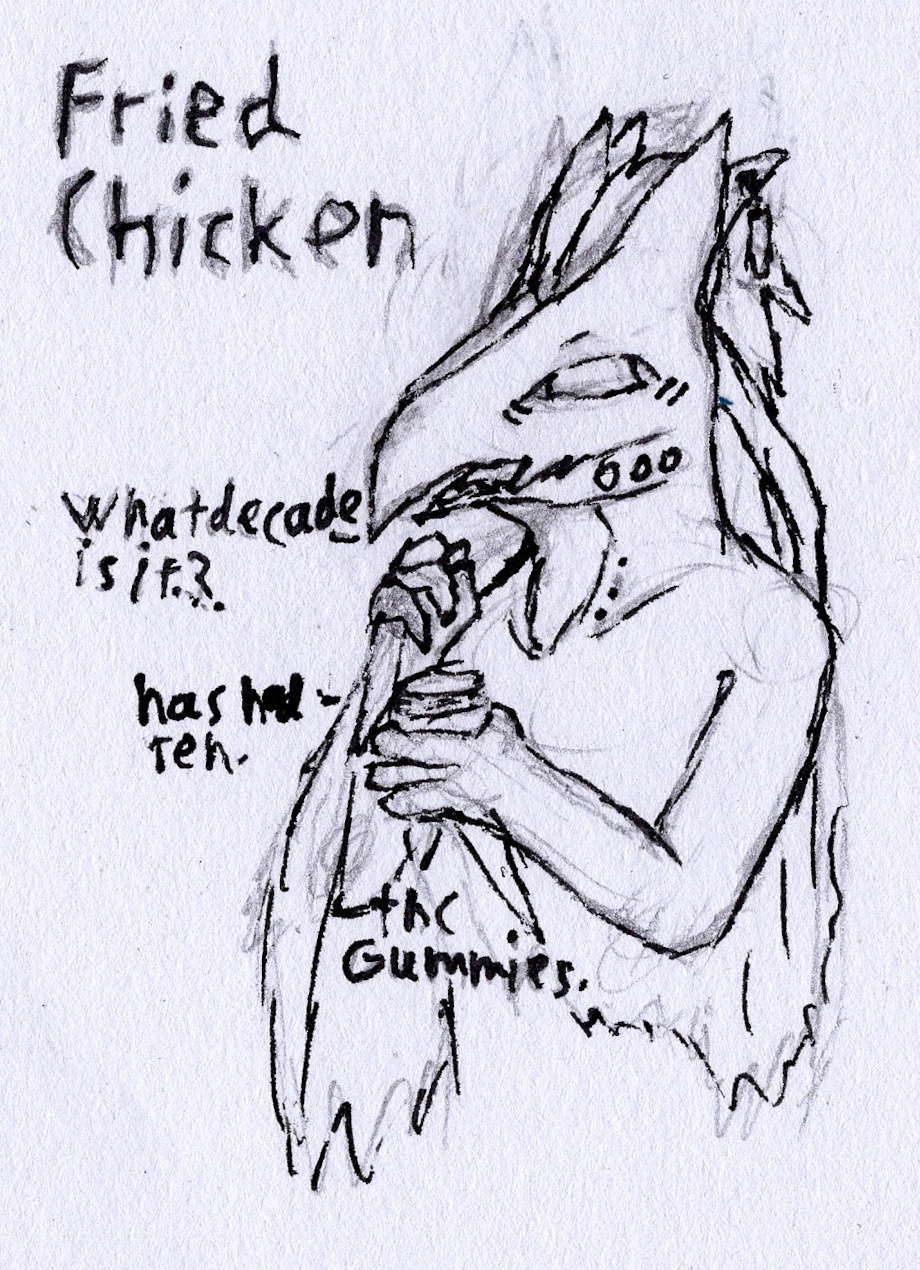 Fried
Chicken
whatdecade
is it?
has had
Ten.
thc
Gummies.